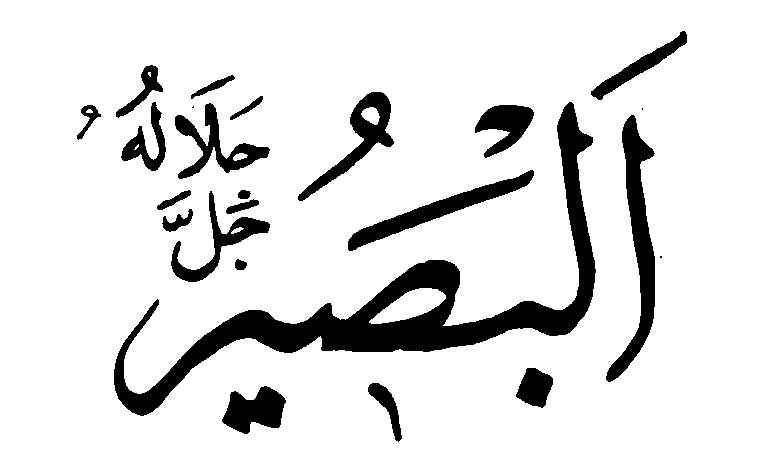 اَلْبَصِيرُ
جَلَّ جَلَالُهُ